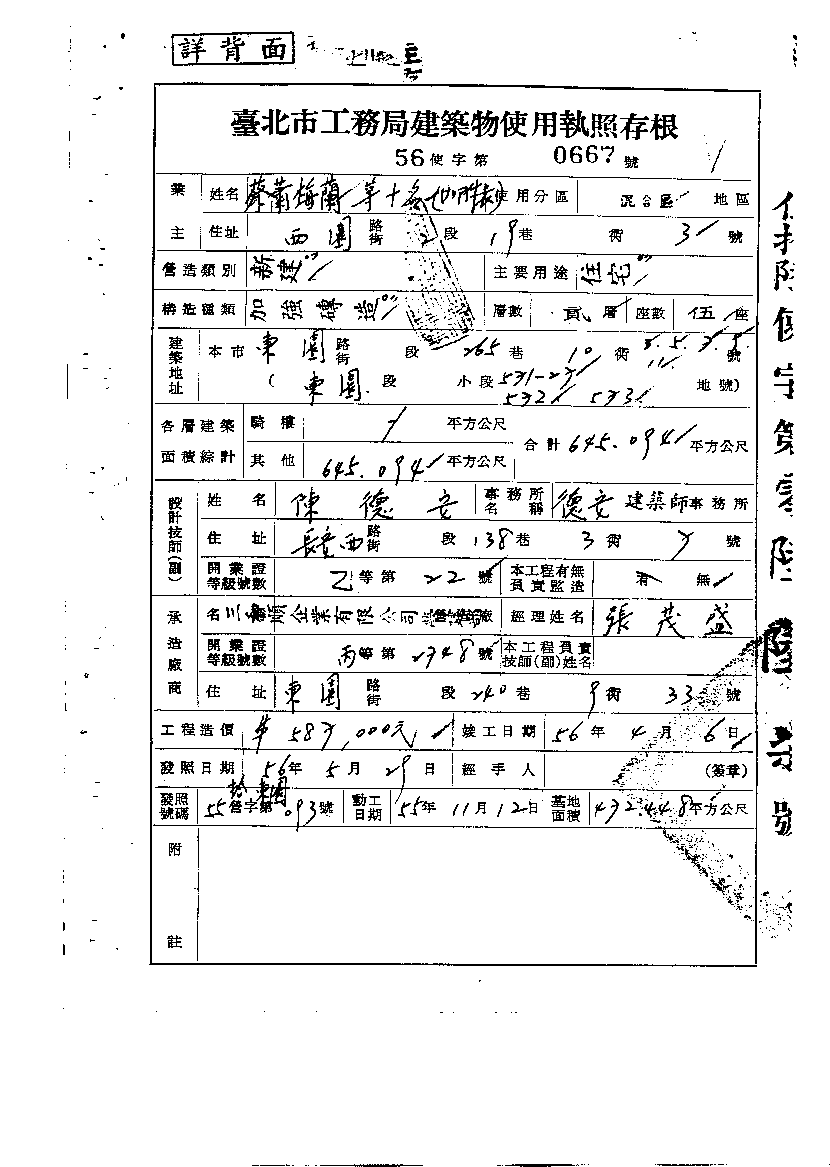 詳背面
臺北市工務局建築物使用執照存根
56使字第 0667 號
業主 姓名 蔡蕭梅蘭 等十名 使用分區 混合區 地區
住址 西園 路街 2 段 19 巷 衖 31 號
營造類別 新建 主要用途 住宅
構造種類 加強磚造 層數 貳層 座數 伍座
建築地址 本市 東園 路街 段 265 巷 10 衖 3.5.7.9. 11 號
( 東園 段 小段 531-23 地號)
532 533
各層建築面積綜計 騎樓 平方公尺 合計 645.094 平方公尺
其他 645.094 平方公尺
設計技師(副) 姓名 陳德安 事務所名稱 德安 建築師事務所
住址 長安西 路街 段 138 巷 3 衖 7 號
開業證等級號數 乙等第 22 號 本工程有無負責監造 有 無
承造廠商 名 順企業有限公司營造廠 經理姓名 張茂盛
開業證等級號數 丙等第 2348 號 本工程負責技師(副)姓名
住址 東園 路街 段 240 巷 9 衖 33 號
工程造價 587,000元 竣工日期 56年 4月 6日
發照日期 56年 5月 29日 經手人 (簽章)
發照號碼 55營字第 093號 動工日期 55年 11月 12日 基地面積 432.448平方公尺
附註